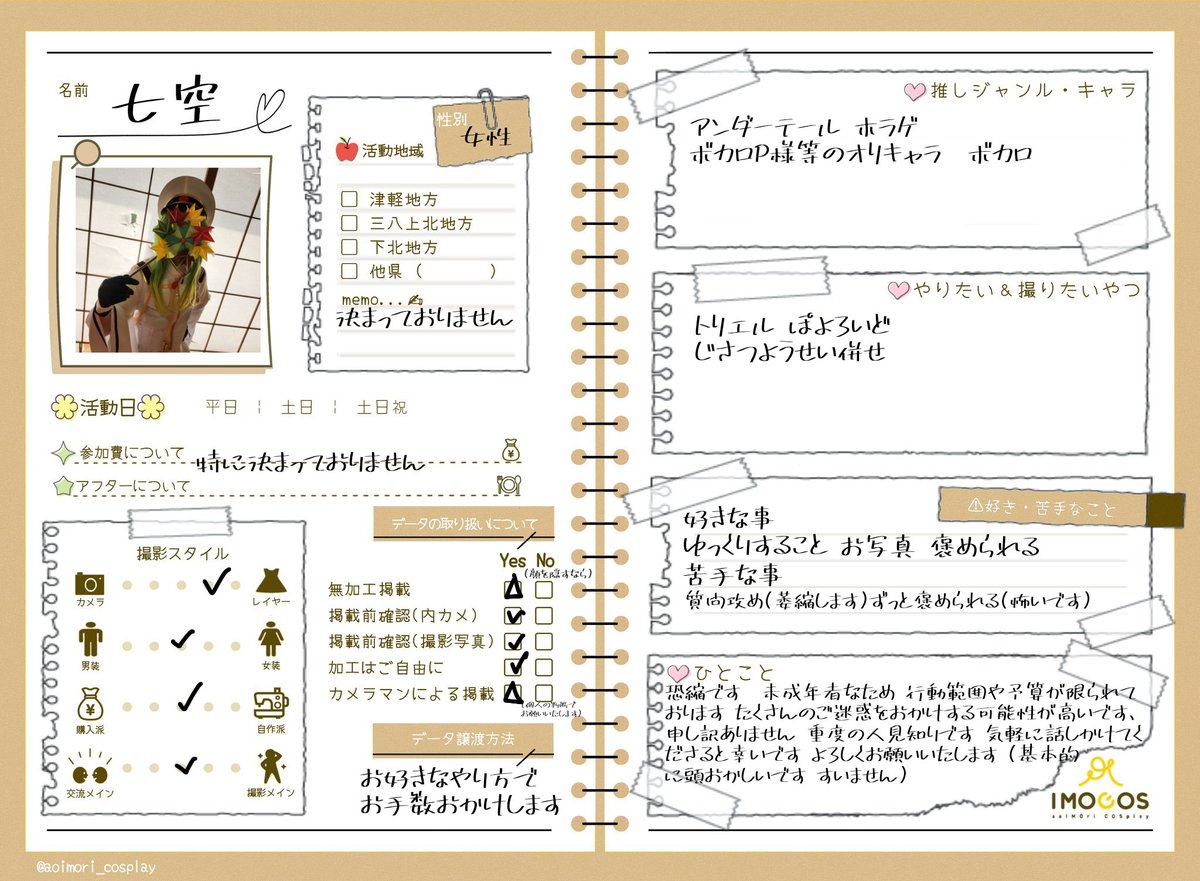 名前
七空
性別
女性
活動地域
津軽地方
三八上北地方
下北地方
他県（　　　　）
memo...
決まっておりません
活動日
平日 ¦ 土日 ¦ 土日祝
参加費について 特に決まっておりません
アフターについて
撮影スタイル
カメラ レイヤー
男装 女装
購入派 自作派
交流メイン 撮影メイン
データの取り扱いについて
Yes No
(顔を隠すなら)
無加工掲載
掲載前確認(内カメ)
掲載前確認(撮影写真)
加工はご自由に
カメラマンによる掲載
(個人の判断で
お願いいたします)
データ譲渡方法
お好きなやり方で
お手数おかけします
@aoimori_cosplay
推しジャンル・キャラ
アンダーテール ホラゲ
ボカロP様等のオリキャラ ボカロ
やりたい＆撮りたいやつ
トリエル ぽよろいど
じさつようせい併せ
⚠好き・苦手なこと
好きな事
ゆっくりすること お写真 褒められる
苦手な事
質問攻め(萎縮します)ずっと褒められる(怖いです)
ひとこと
恐縮です 未成年者なため 行動範囲や予算が限られて
おります たくさんのご迷惑をおかけする可能性が高いです、
申し訳ありません 重度の人見知りです 気軽に話しかけてく
ださると幸いです よろしくお願いいたします (基本的
に頭おかしいです すいません)
IMOCOS
aoiMOri COSplay